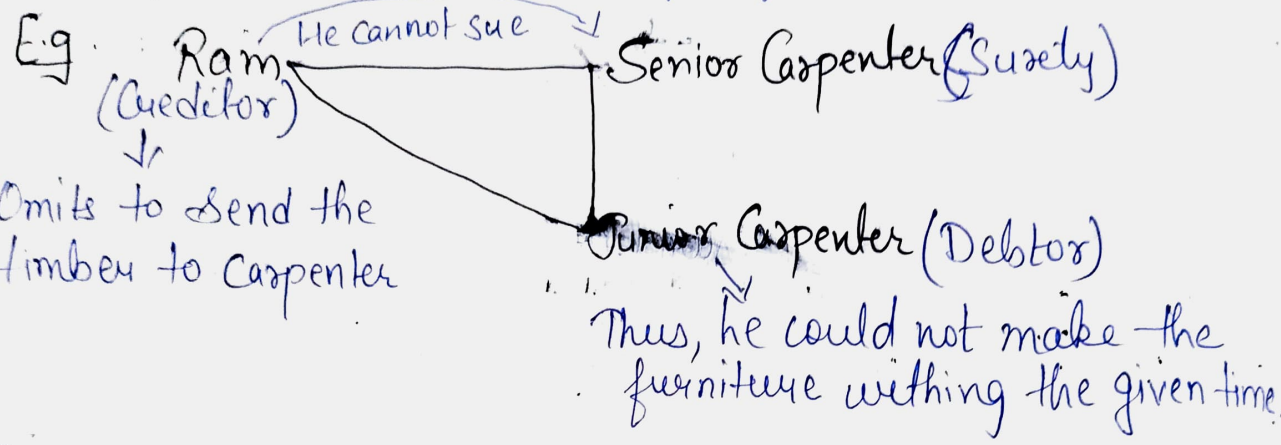 E.g. Ram He cannot sue Senior Carpenter (Surety)
(Creditor)
Omits to send the
timber to Carpenter
Junior Carpenter (Debtor)
Thus, he could not make the
furniture withing the given time.